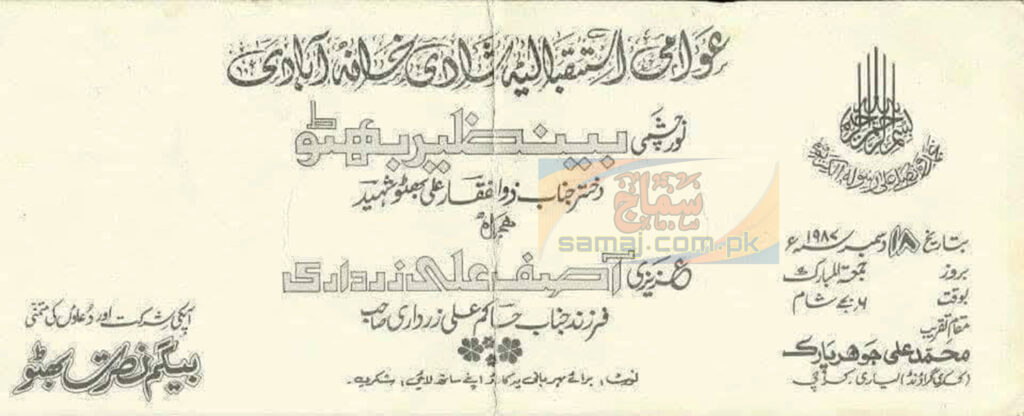 عوامی استقبالیہ شادی خانہ آبادی
نورچشمی بینظیر بھٹو
دختر جناب ذوالفقار علی بھٹو شہید
ہمراہ
عزیزی آصف علی زرداری
فرزند جناب حاکم علی زرداری صاحب
نوٹ: برائے مہربانی یہ کارڈ اپنے ساتھ لائیں، شکریہ۔
بسم اللہ الرحمن الرحیم
نحمدہ ونصلی علی رسولہ الکریم
بتاریخ ۱۸ دسمبر ۱۹۸۷ء
بروز جمعۃ المبارک
بوقت ۴ بجے شام
مقام تقریب
محمد علی جوہر پارک
(ککری گراؤنڈ) لیاری، کراچی
آپکی شرکت اور دعاؤں کی متمنی
بیگم نصرت بھٹو
سماج
samaj.com.pk